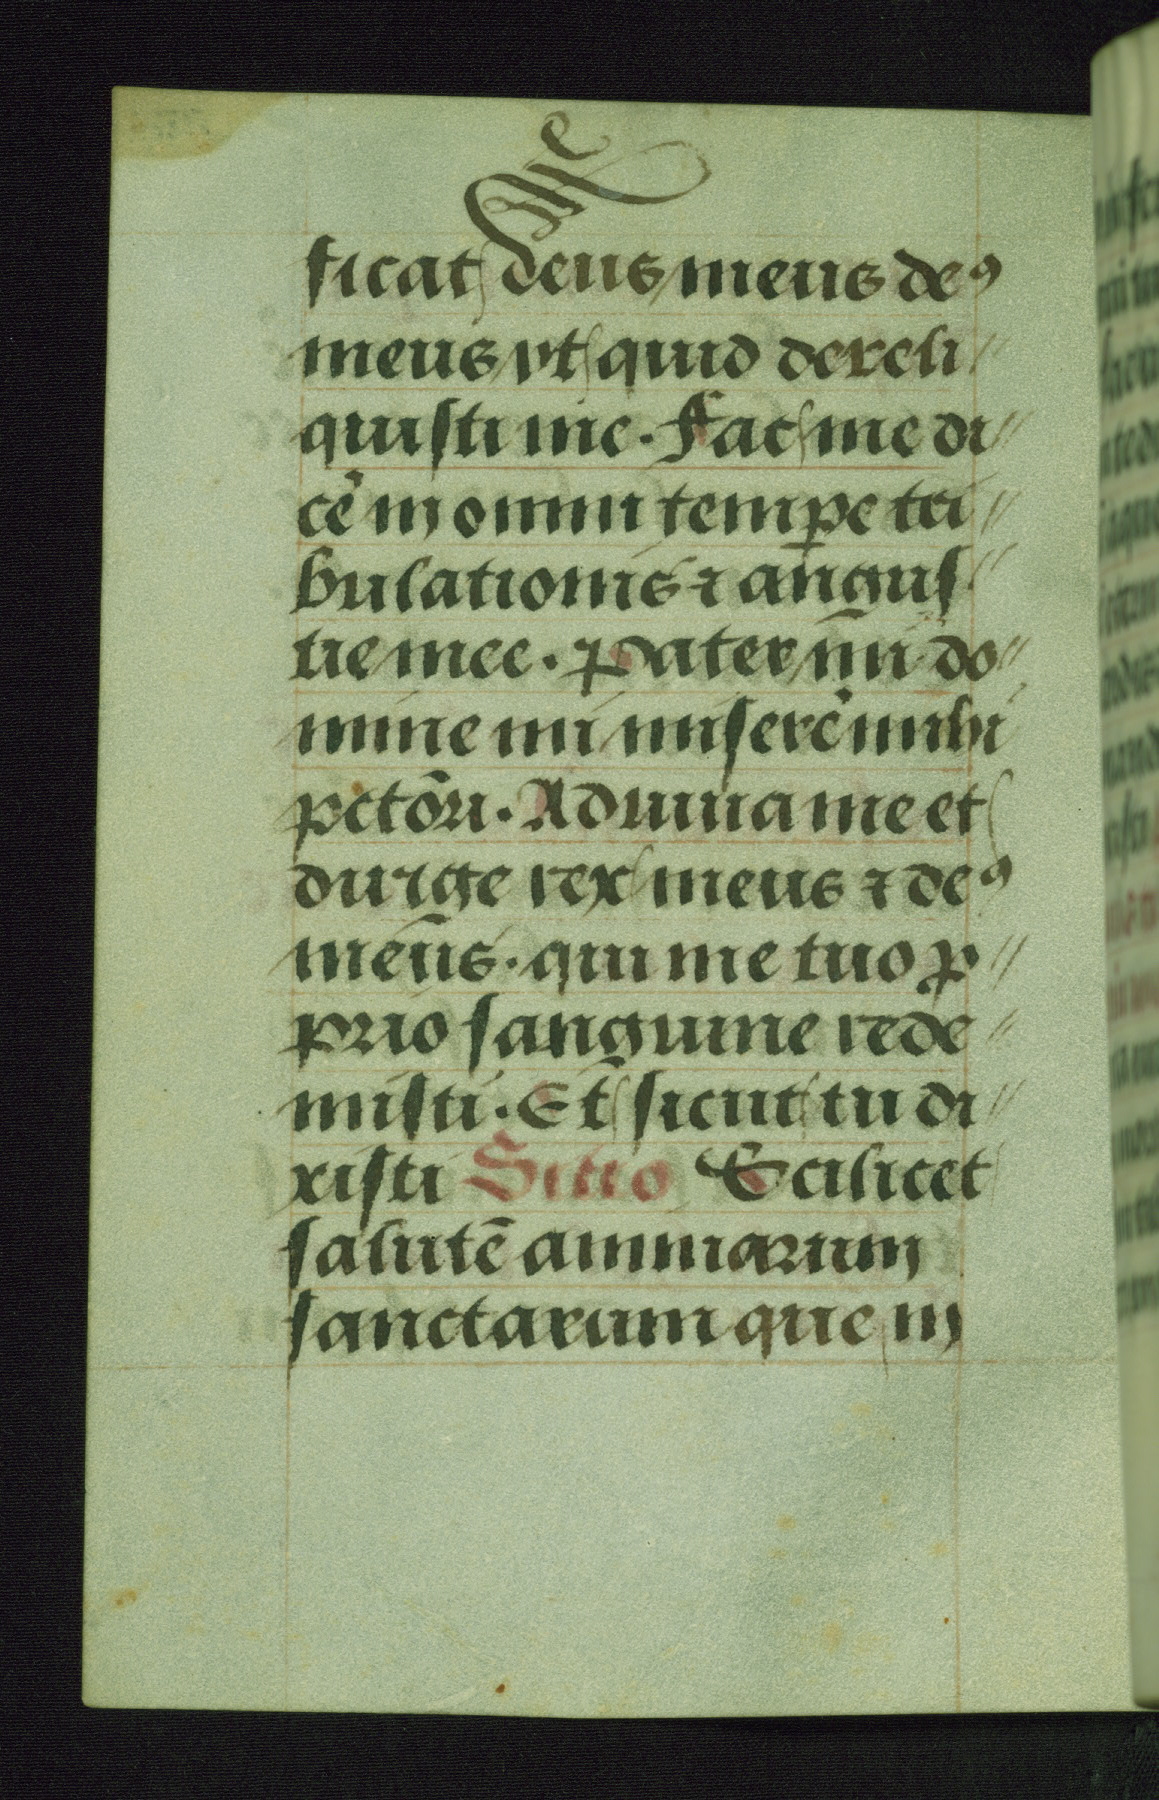 ficat deus meus de⁹
meus vt quid dereli
quisti me. Fac me di
cẽ in omni tempe tri
bulationis ⁊ angus
tie mee. Pater mi do
mine mi miserẽ mihi
pctõri. Adiuua me et
dirige rex meus ⁊ de⁹
meus. qui me tuo ꝓ
prio sanguine rede
misti. Et sicut tu di
xisti Sitio Scilicet
salutẽ animarum
sanctarum que in